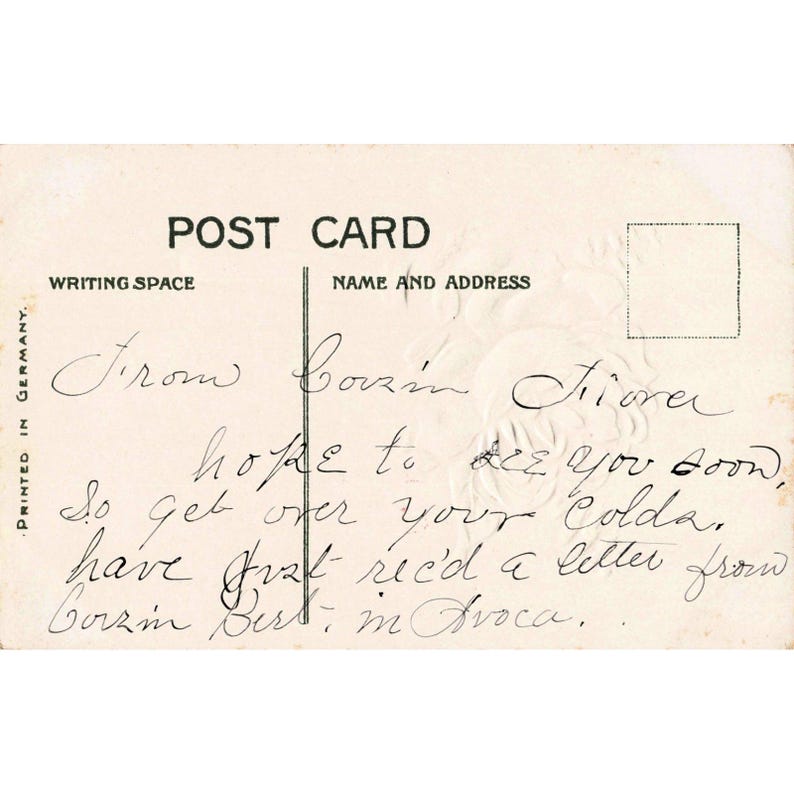 POST CARD
WRITING SPACE
NAME AND ADDRESS
PRINTED IN GERMANY.
From Couzin
hope to see you soon,
So get over your Colds.
have Just rec'd a letter from
Couzin Bert. in Avoca.